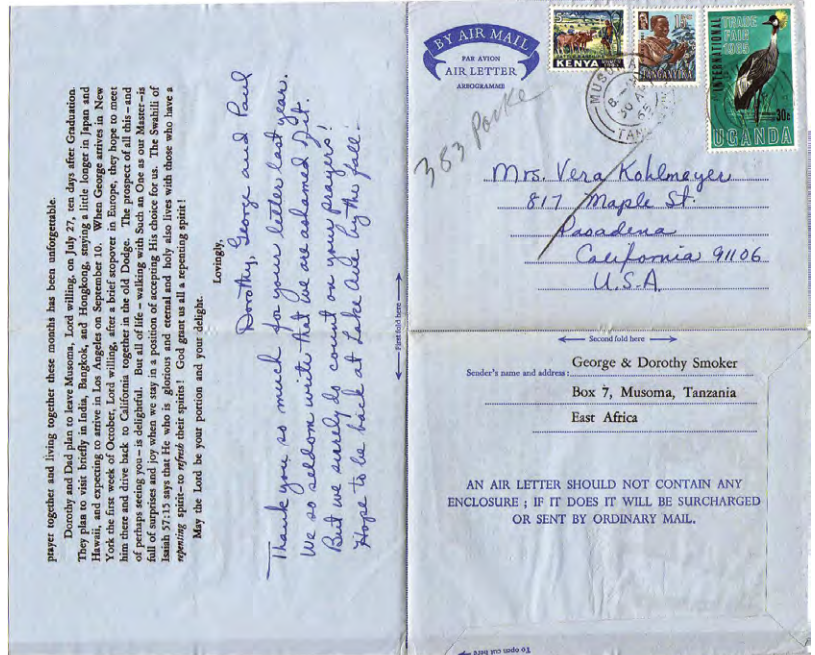 prayer together and living together these months has been unforgettable.
Dorothy and Dad plan to leave Musoma, Lord willing, on July 27, ten days after Graduation
They plan to visit briefly in India, Bangkok, and Hongkong, staying a little longer in Japan and
Hawaii, and expecting to arrive in Los Angeles on September 10. When George arrives in New
York the first week of October, Lord willing, after a brief stopover in Europe, they hope to meet
him there and drive back to California together in the old Dodge. The prospect of all this—and
of perhaps seeing you—is delightful. But all of life—walking with Such an One as our Master—is
full of surprises and joy when we stay in a position of accepting His choice for us. The Swahili of
Isaiah 57:15 says that He who is glorious and eternal and holy also lives with those who have a
repenting spirit—to refresh their spirits! God grant us all a repenting spirit!
May the Lord be your portion and your delight.
Lovingly,
Dorothy, George and Paul
Thank you so much for your letter last year.
We so seldom write that we are ashamed of it.
But we surely do count on your prayers!
Hope to be back at Lake Ave by the fall.
BY AIR MAIL
PAR AVION
AIR LETTER
AEROGRAMME
KENYA
TANGANYIKA
INTERNATIONAL
TRADE
FAIR
1965
30c
UGANDA
MUSOMA
65
383 Parke
Mrs. Vera Kohlmeyer
817 Maple St.
Pasadena
California 91106
U.S.A.
First fold here
Second fold here
Sender's name and address: George & Dorothy Smoker
Box 7, Musoma, Tanzania
East Africa
AN AIR LETTER SHOULD NOT CONTAIN ANY
ENCLOSURE ; IF IT DOES IT WILL BE SURCHARGED
OR SENT BY ORDINARY MAIL.
To open cut here